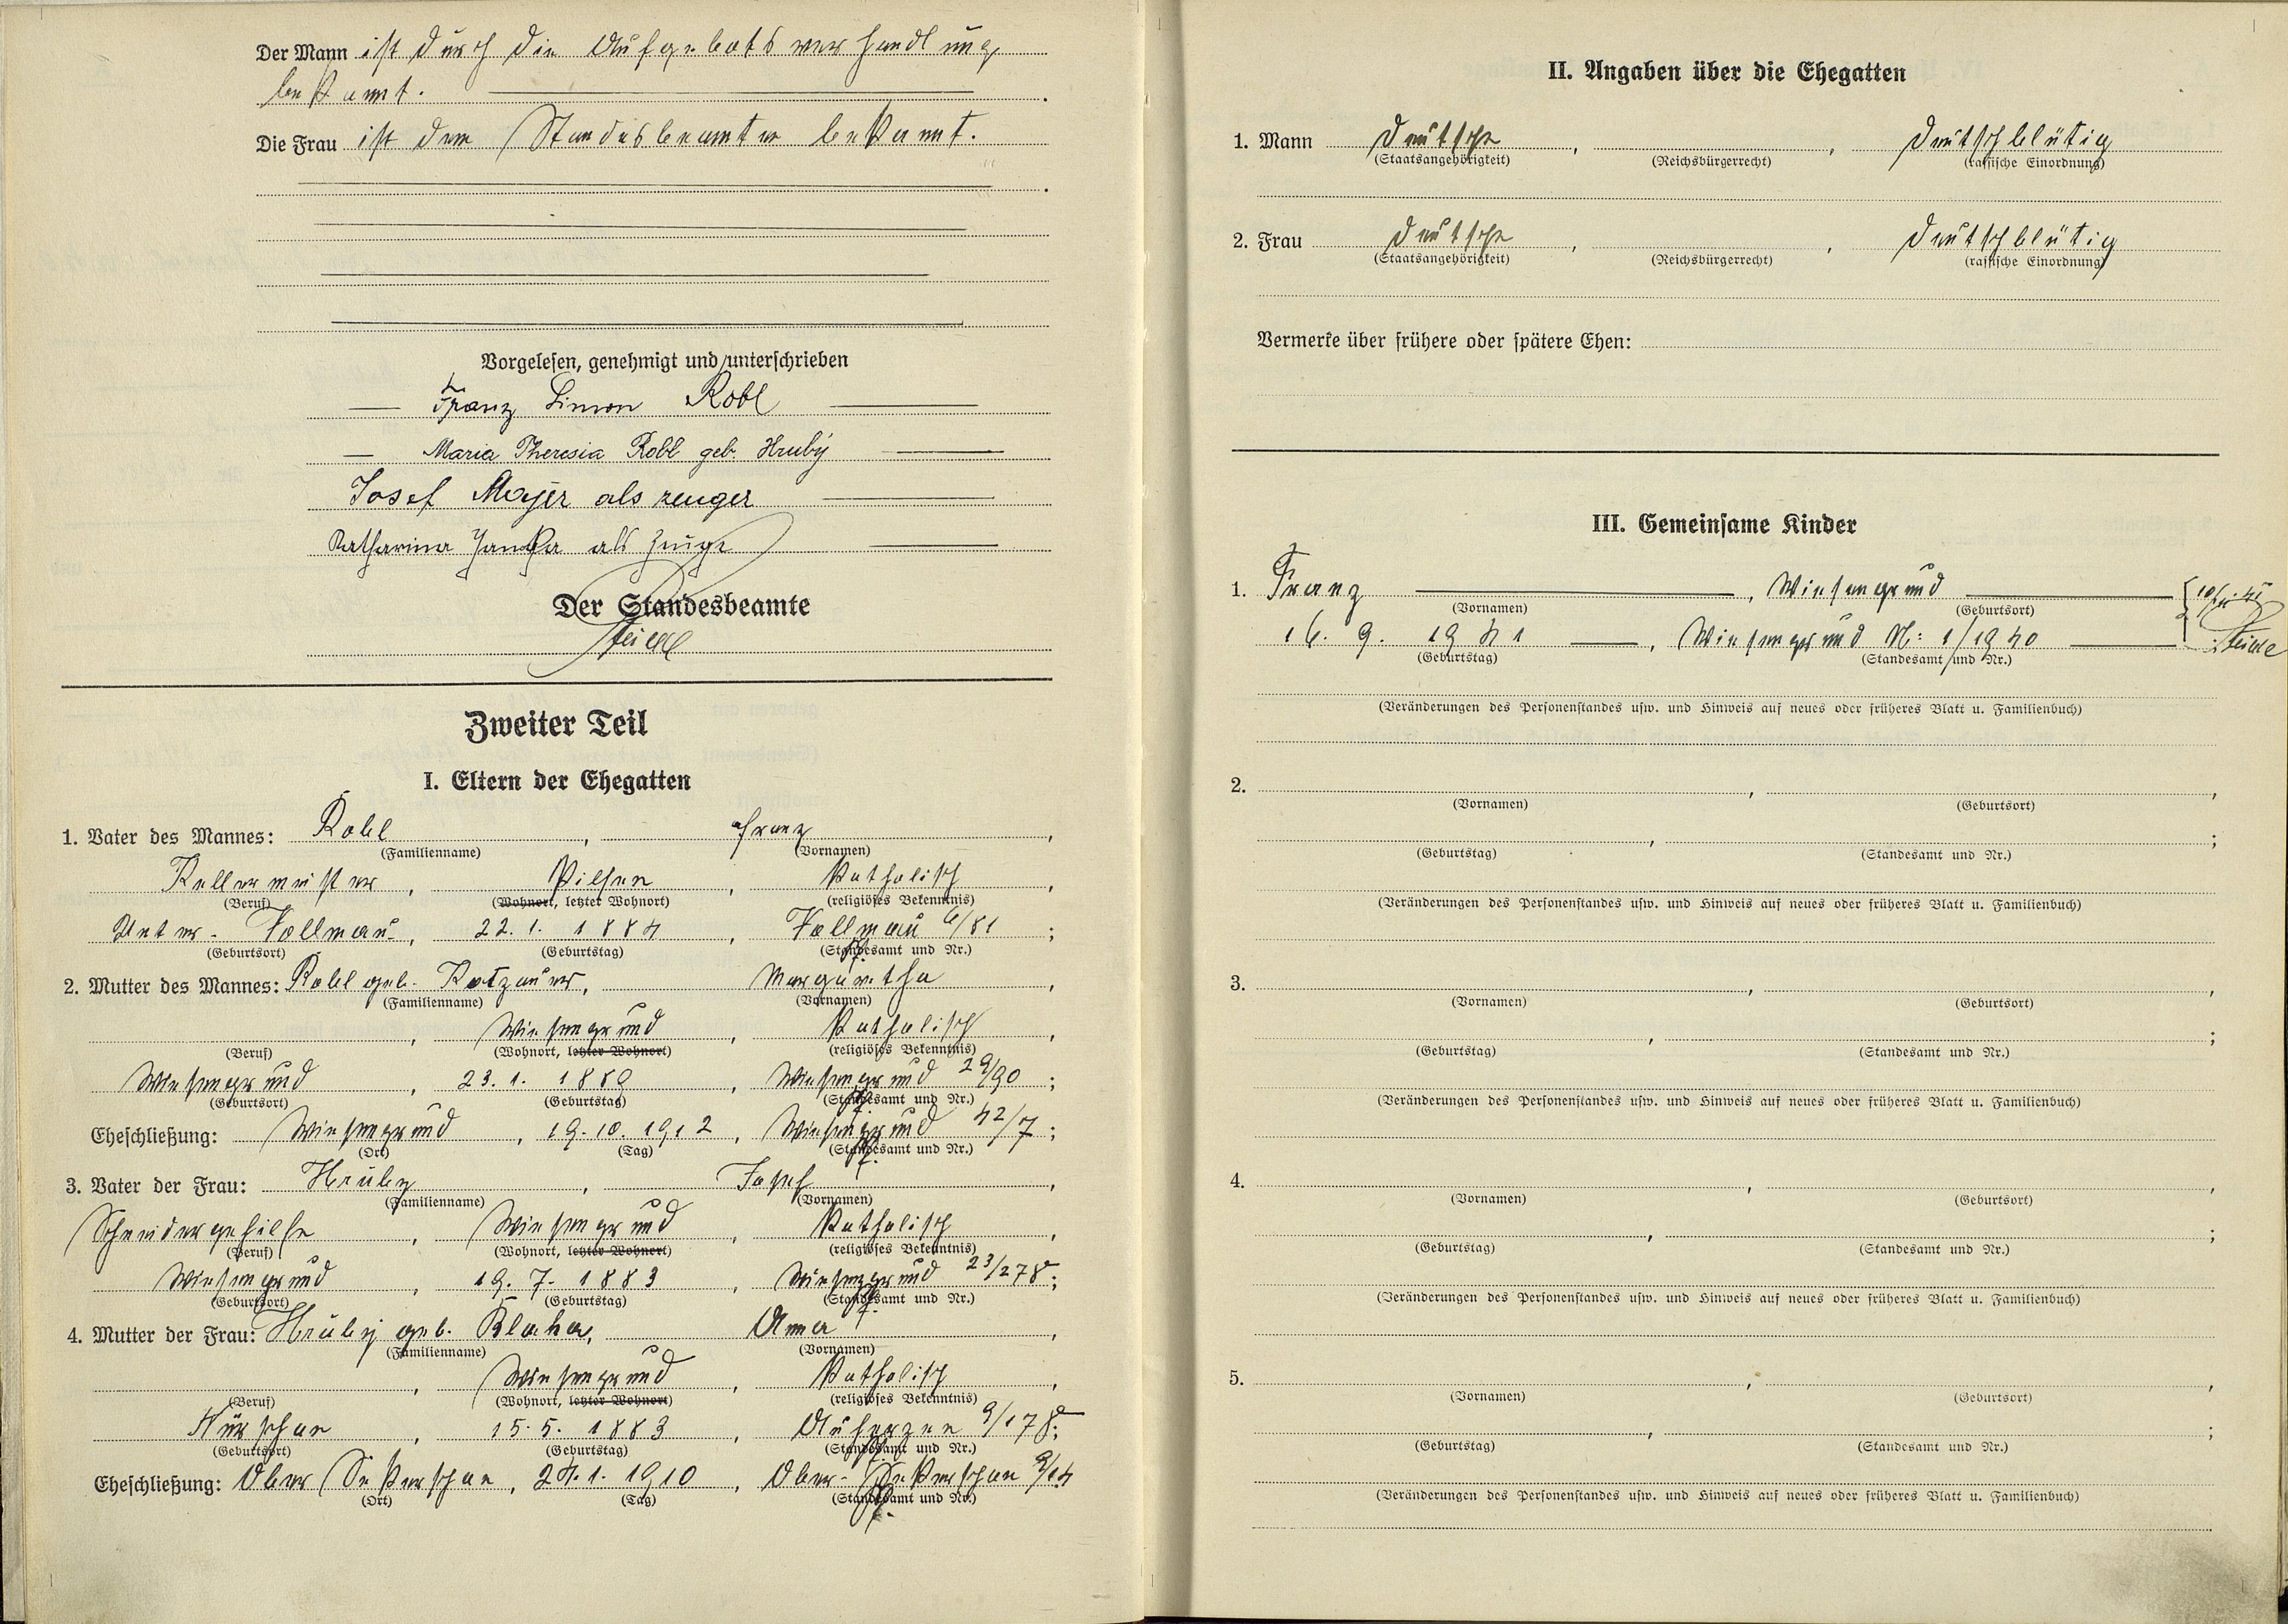 Der Mann ist durch die Aufgebotsverhandlung
bekannt.
Die Frau ist dem Standesbeamten bekannt.
Vorgelesen, genehmigt und unterschrieben
Franz Simon Robl
Maria Theresia Robl geb. Hrubý
Josef Majer als zeuger
Katharina Janka als Zeuge
Der Standesbeamte
Zweiter Teil
I. Eltern der Ehegatten
1. Vater des Mannes: Robl, Franz,
(Familienname) (Vornamen)
Kellermeister, Pilsen, katholisch,
(Beruf) (Wohnort, letzter Wohnort) (religiöses Bekenntnis)
Unter-Vollmau, 22. 1. 1884, Vollmau 6/81;
(Geburtsort) (Geburtstag) (Standesamt und Nr.)
2. Mutter des Mannes: Robl geb. Rotzauer, Margaretha,
(Familienname) (Vornamen)
Wiesengrund, katholisch,
(Beruf) (Wohnort, letzter Wohnort) (religiöses Bekenntnis)
Wiesengrund, 23. 1. 1889, Wiesengrund 29/90;
(Geburtsort) (Geburtstag) (Standesamt und Nr.)
Eheschließung: Wiesengrund, 19. 10. 1912, Wiesengrund 42/7;
(Ort) (Tag) (Standesamt und Nr.)
3. Vater der Frau: Hruby, Josef,
(Familienname) (Vornamen)
Schneidergehilfe, Wiesengrund, katholisch,
(Beruf) (Wohnort, letzter Wohnort) (religiöses Bekenntnis)
Wiesengrund, 19. 7. 1883, Wiesengrund 23/278;
(Geburtsort) (Geburtstag) (Standesamt und Nr.)
4. Mutter der Frau: Hrubý geb. Blaha, Anna,
(Familienname) (Vornamen)
Wiesengrund, katholisch,
(Beruf) (Wohnort, letzter Wohnort) (religiöses Bekenntnis)
Nürschan, 15. 5. 1883, Auherzen 9/178;
(Geburtsort) (Geburtstag) (Standesamt und Nr.)
Eheschließung: Ober Sekerschan, 24. 1. 1910, Ober-Sekerschan 9/14
(Ort) (Tag) (Standesamt und Nr.)
II. Angaben über die Ehegatten
1. Mann deutsche, , deutschblütig
(Staatsangehörigkeit) (Reichsbürgerrecht) (rassische Einordnung)
2. Frau deutsche, , deutschblütig
(Staatsangehörigkeit) (Reichsbürgerrecht) (rassische Einordnung)
Vermerke über frühere oder spätere Ehen:
III. Gemeinsame Kinder
1. Franz, Wiesengrund
(Vornamen) (Geburtsort)
16. 9. 1941, Wiesengrund N: 1/1940
(Geburtstag) (Standesamt und Nr.)
(Veränderungen des Personenstandes usw. und Hinweis auf neues oder früheres Blatt u. Familienbuch)
2. , ,
(Vornamen) (Geburtsort)
, ;
(Geburtstag) (Standesamt und Nr.)
(Veränderungen des Personenstandes usw. und Hinweis auf neues oder früheres Blatt u. Familienbuch)
3. , ,
(Vornamen) (Geburtsort)
, ;
(Geburtstag) (Standesamt und Nr.)
(Veränderungen des Personenstandes usw. und Hinweis auf neues oder früheres Blatt u. Familienbuch)
4. , ,
(Vornamen) (Geburtsort)
, ;
(Geburtstag) (Standesamt und Nr.)
(Veränderungen des Personenstandes usw. und Hinweis auf neues oder früheres Blatt u. Familienbuch)
5. , ,
(Vornamen) (Geburtsort)
, ;
(Geburtstag) (Standesamt und Nr.)
(Veränderungen des Personenstandes usw. und Hinweis auf neues oder früheres Blatt u. Familienbuch)